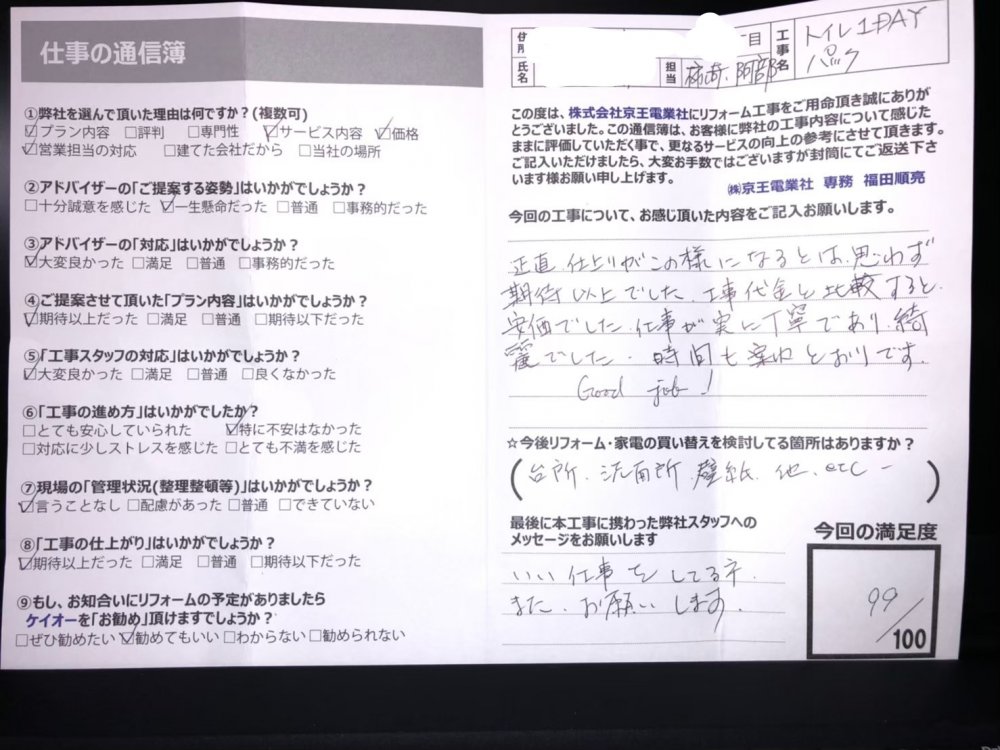 仕事の通信簿
①弊社を選んで頂いた理由は何ですか?(複数可)
☑プラン内容 □評判 □専門性 ☑サービス内容 ☑価格
☑営業担当の対応 □建てた会社だから □当社の場所
②アドバイザーの「ご提案する姿勢」はいかがでしょうか?
□十分誠意を感じた ☑一生懸命だった □普通 □事務的だった
③アドバイザーの「対応」はいかがでしょうか?
☑大変良かった □満足 □普通 □事務的だった
④ご提案させて頂いた「プラン内容」はいかがでしょうか?
☑期待以上だった □満足 □普通 □期待以下だった
⑤「工事スタッフの対応」はいかがでしょうか?
☑大変良かった □満足 □普通 □良くなかった
⑥「工事の進め方」はいかがでしたか?
□とても安心していられた ☑特に不安はなかった
□対応に少しストレスを感じた □とても不満を感じた
⑦現場の「管理状況(整理整頓等)」はいかがでしょうか?
☑言うことなし □配慮があった □普通 □できていない
⑧「工事の仕上がり」はいかがでしょうか?
☑期待以上だった □満足 □普通 □期待以下だった
⑨もし、お知合いにリフォームの予定がありましたら
ケイオーを「お勧め」頂けますでしょうか?
□ぜひ勧めたい ☑勧めてもいい □わからない □勧められない
目
氏名
担当 柿崎、阿部
工事名
トイレ1DAY
パック
この度は、株式会社京王電業社にリフォーム工事をご用命頂き誠にありが
とうございました。この通信簿は、お客様に弊社の工事内容について感じた
ままに評価していただく事で、更なるサービスの向上の参考にさせて頂きます。
ご記入いただけましたら、大変お手数ではございますが封筒にてご返送下さ
います様お願い申し上げます。
㈱京王電業社 専務 福田順亮
今回の工事について、お感じ頂いた内容をご記入お願いします。
正直 仕上りがこの様になるとは、思わず
期待以上でした。工事代金と比較すると、
安価でした。仕事が実に丁寧であり、綺
麗でした。時間も案内とおりです。
Good job!
☆今後リフォーム・家電の買い替えを検討してる箇所はありますか?
(台所、洗面所、壁紙、他、etc-)
最後に本工事に携わった弊社スタッフへの
メッセージをお願いします
いい仕事をしてるネ.
また、お願いします。
今回の満足度
99/100